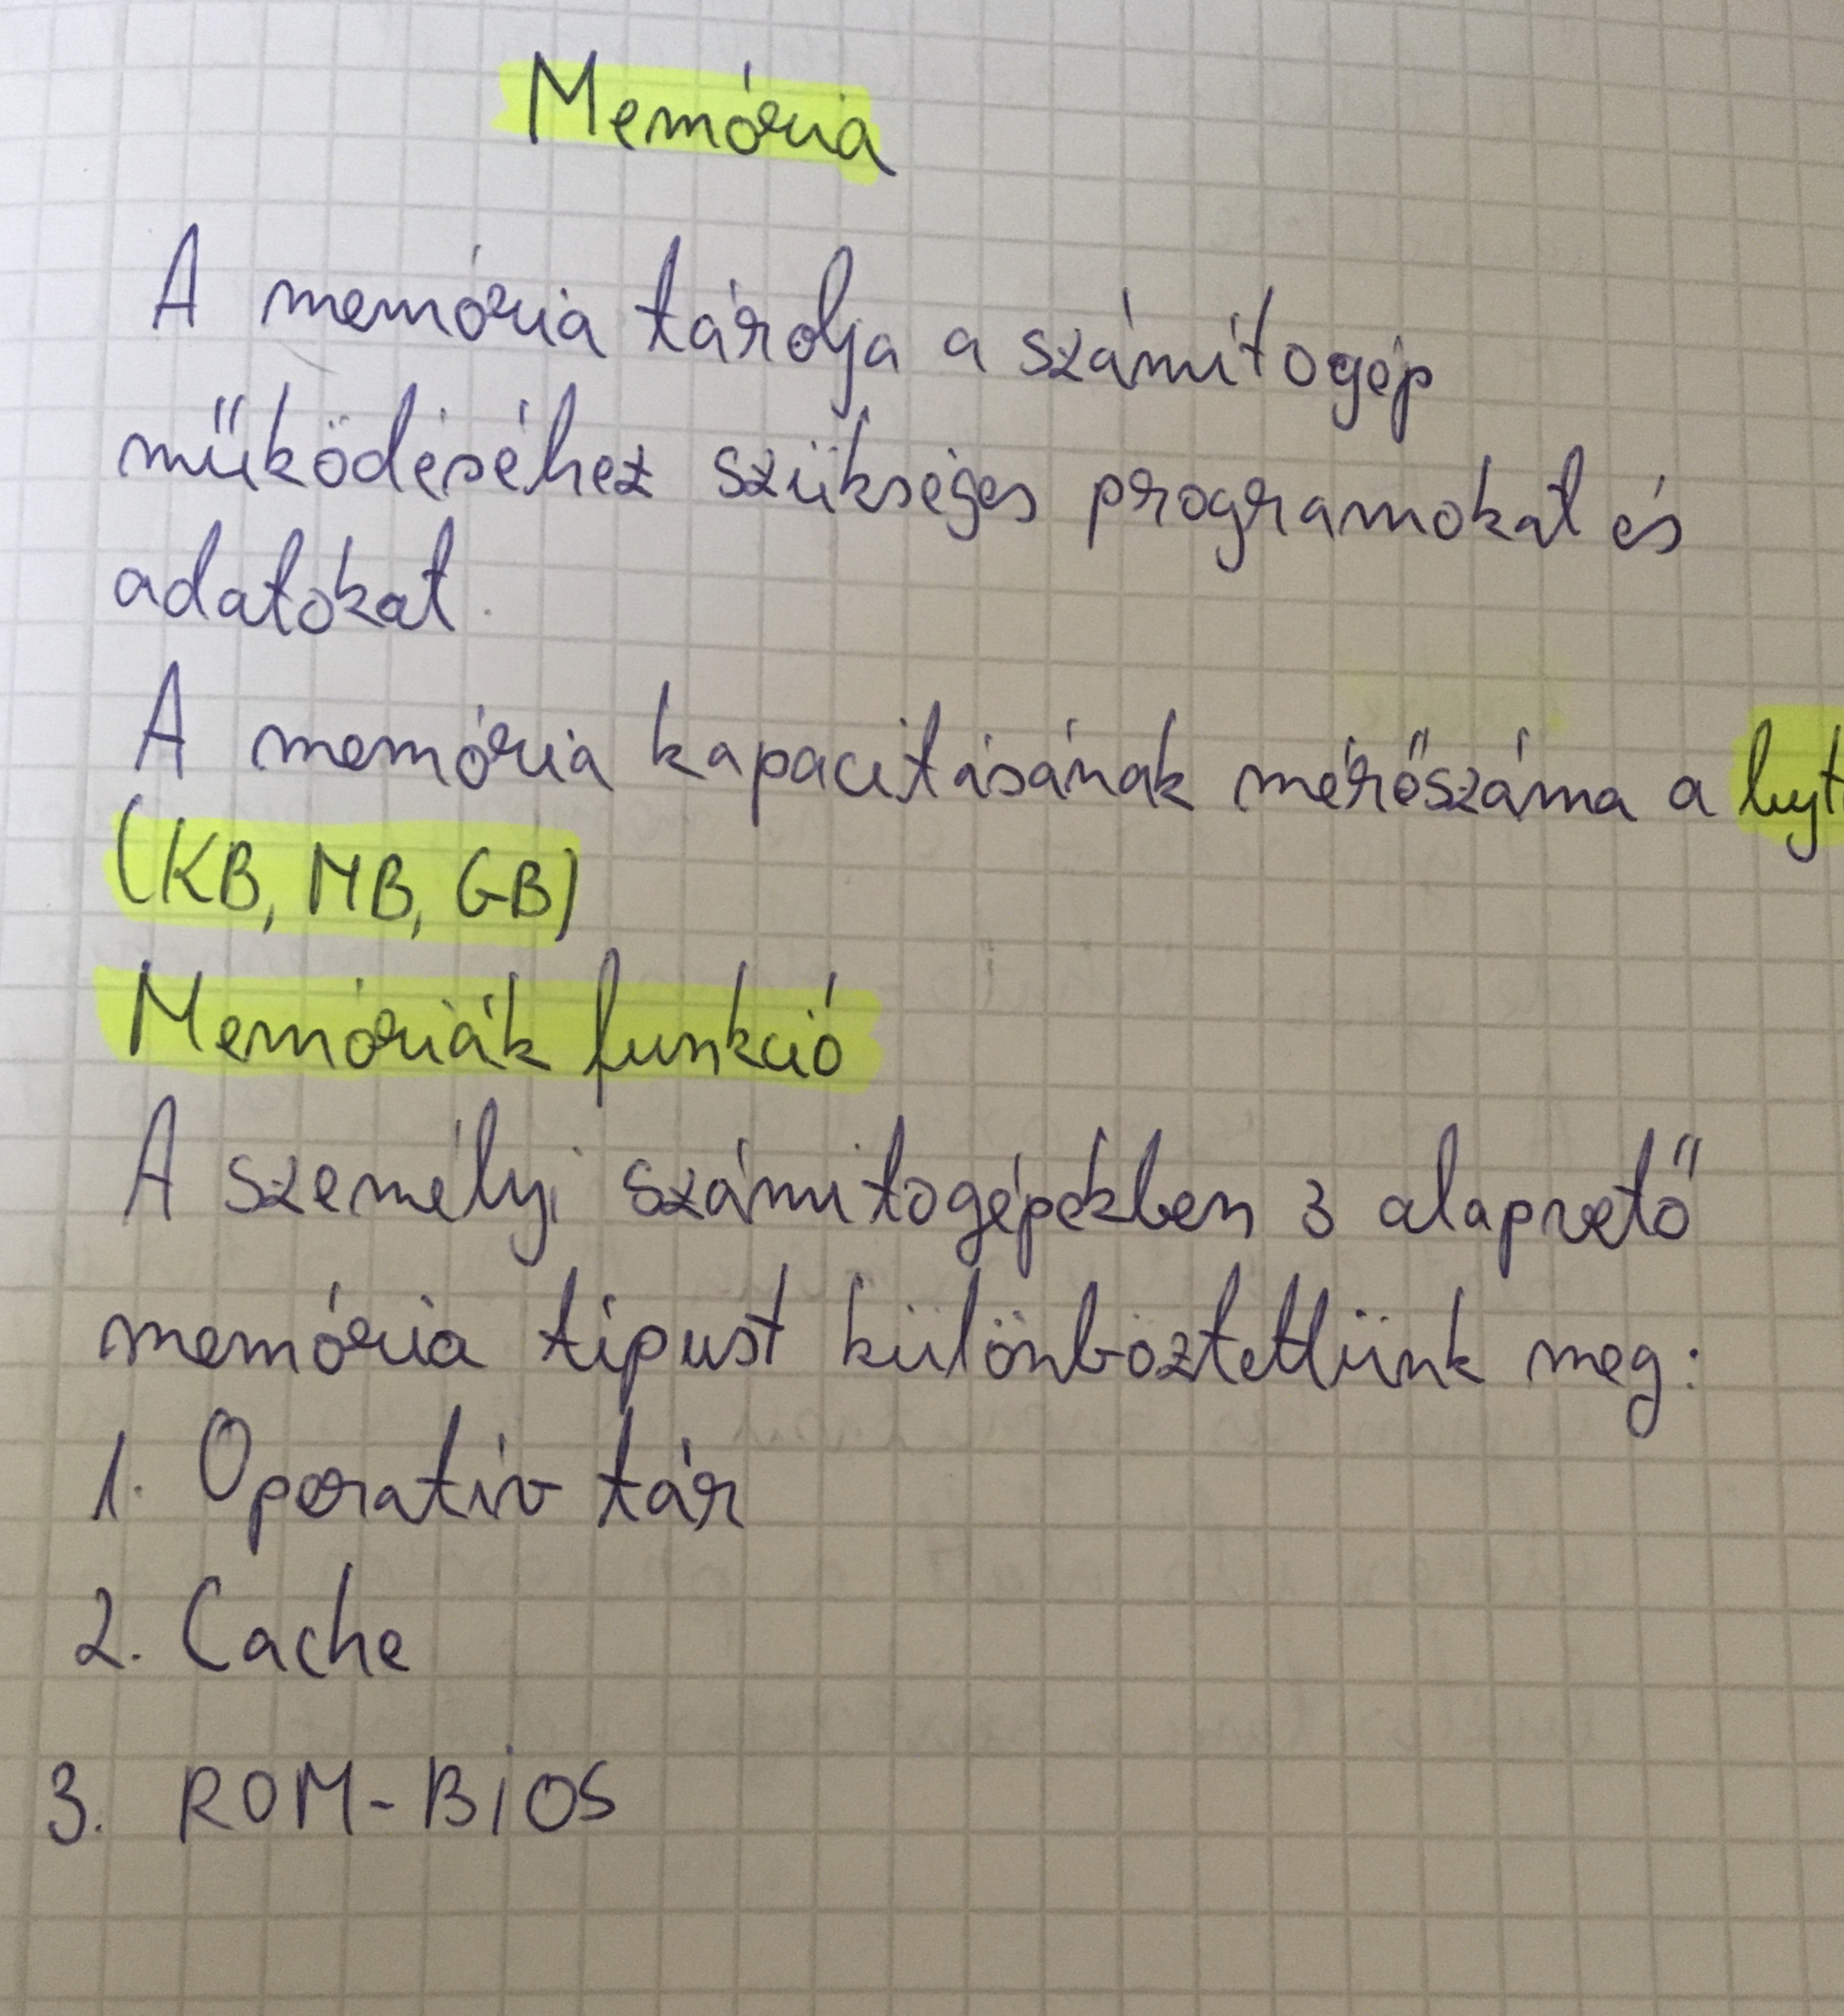 Memória
A memória tárolja a számítogép
működéséhez szükséges programokat és
adatokat.
A memória kapacitásának mérőszáma a byt
(KB, MB, GB)
Memóriák funkció
A személyi számitogépekben 3 alapvető
memória tipust különböztetlünk meg:
1. Operatív tár
2. Cache
3. ROM-BiOS